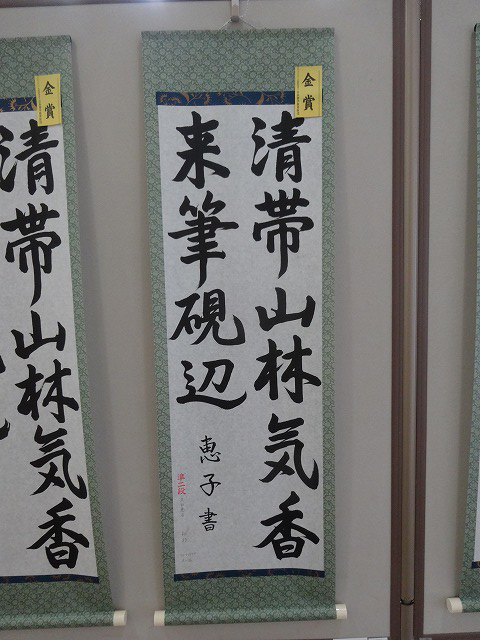 金賞
清帯山林気香
来筆硯辺
恵子書
準二段
金賞
清帯山林気香